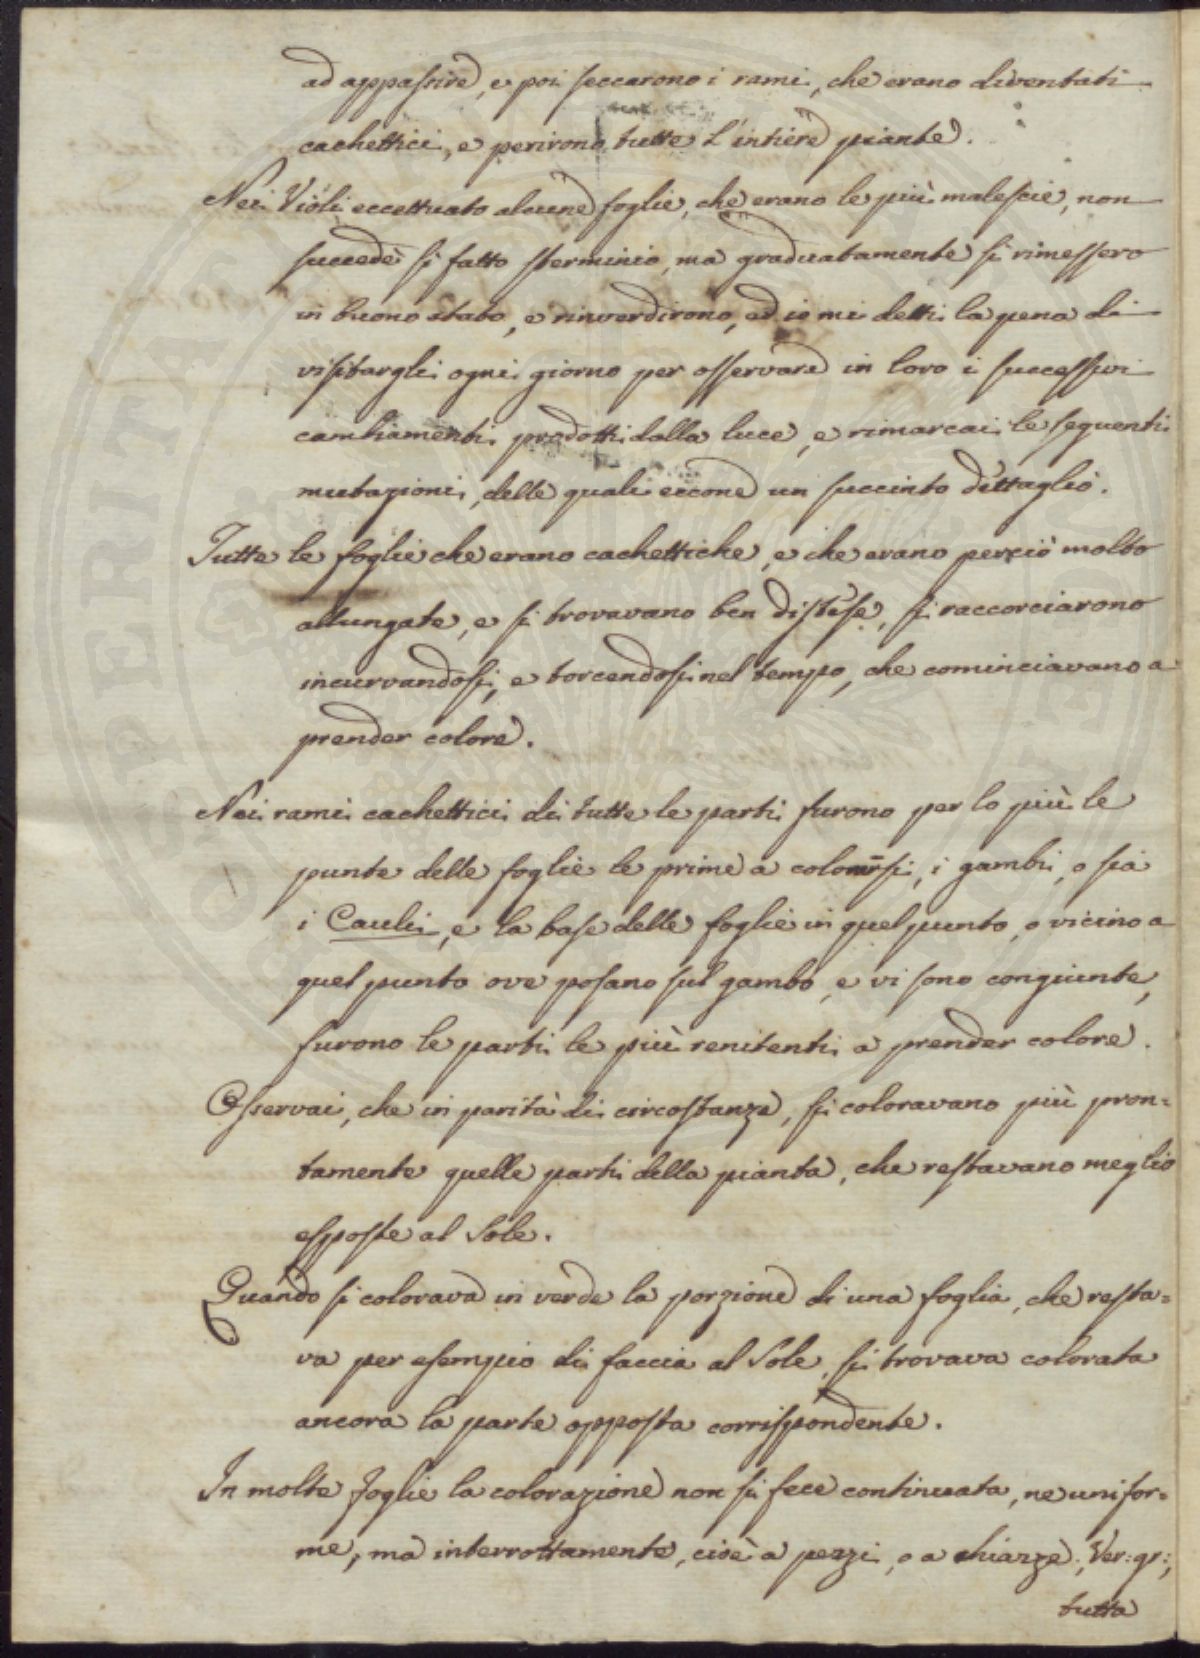 ad appassire, e poi seccarono i rami, che erano diventati
cachettici, e perirono tutte l'intiere piante.
Nei Violi eccettuato alcune foglie, che erano le più malescie, non
succedè sì fatto sterminio, ma graduatamente si rimessero
in buono stato, e rinverdirono, ed io mi detti la pena di
visitargli ogni giorno per osservare in loro i successivi
cambiamenti prodotti dalla luce, e rimarcai le seguenti
mutazioni, delle quali eccone un succinto dettaglio.
Tutte le foglie che erano cachettiche, e che erano perciò molto
allungate, e si trovavano ben distese, si raccorciarono
incurvandosi, e torcendosi nel tempo, che cominciavano a
prender colore.
Nei rami cachettici di tutte le parti furono per lo più le
punte delle foglie le prime a colorirsi, i gambi, o sia
i Cauli, e la base delle foglie in quel punto, o vicino a
quel punto ove posano sul gambo, e vi sono congiunte,
furono le parti le più renitenti a prender colore.
Osservai, che in parità di circostanze, si coloravano più pron=
tamente quelle parti della pianta, che restavano meglio
esposte al Sole.
Quando si colorava in verde la porzione di una foglia, che resta=
va per esempio di faccia al Sole, si trovava colorata
ancora la parte opposta corrispondente.
In molte foglie la colorazione non si fece continuata, ne unifor=
me, ma interrottamente, cioè a pezzi, o a chiazze; Ver: gr:,
tutta
COSPERITAS